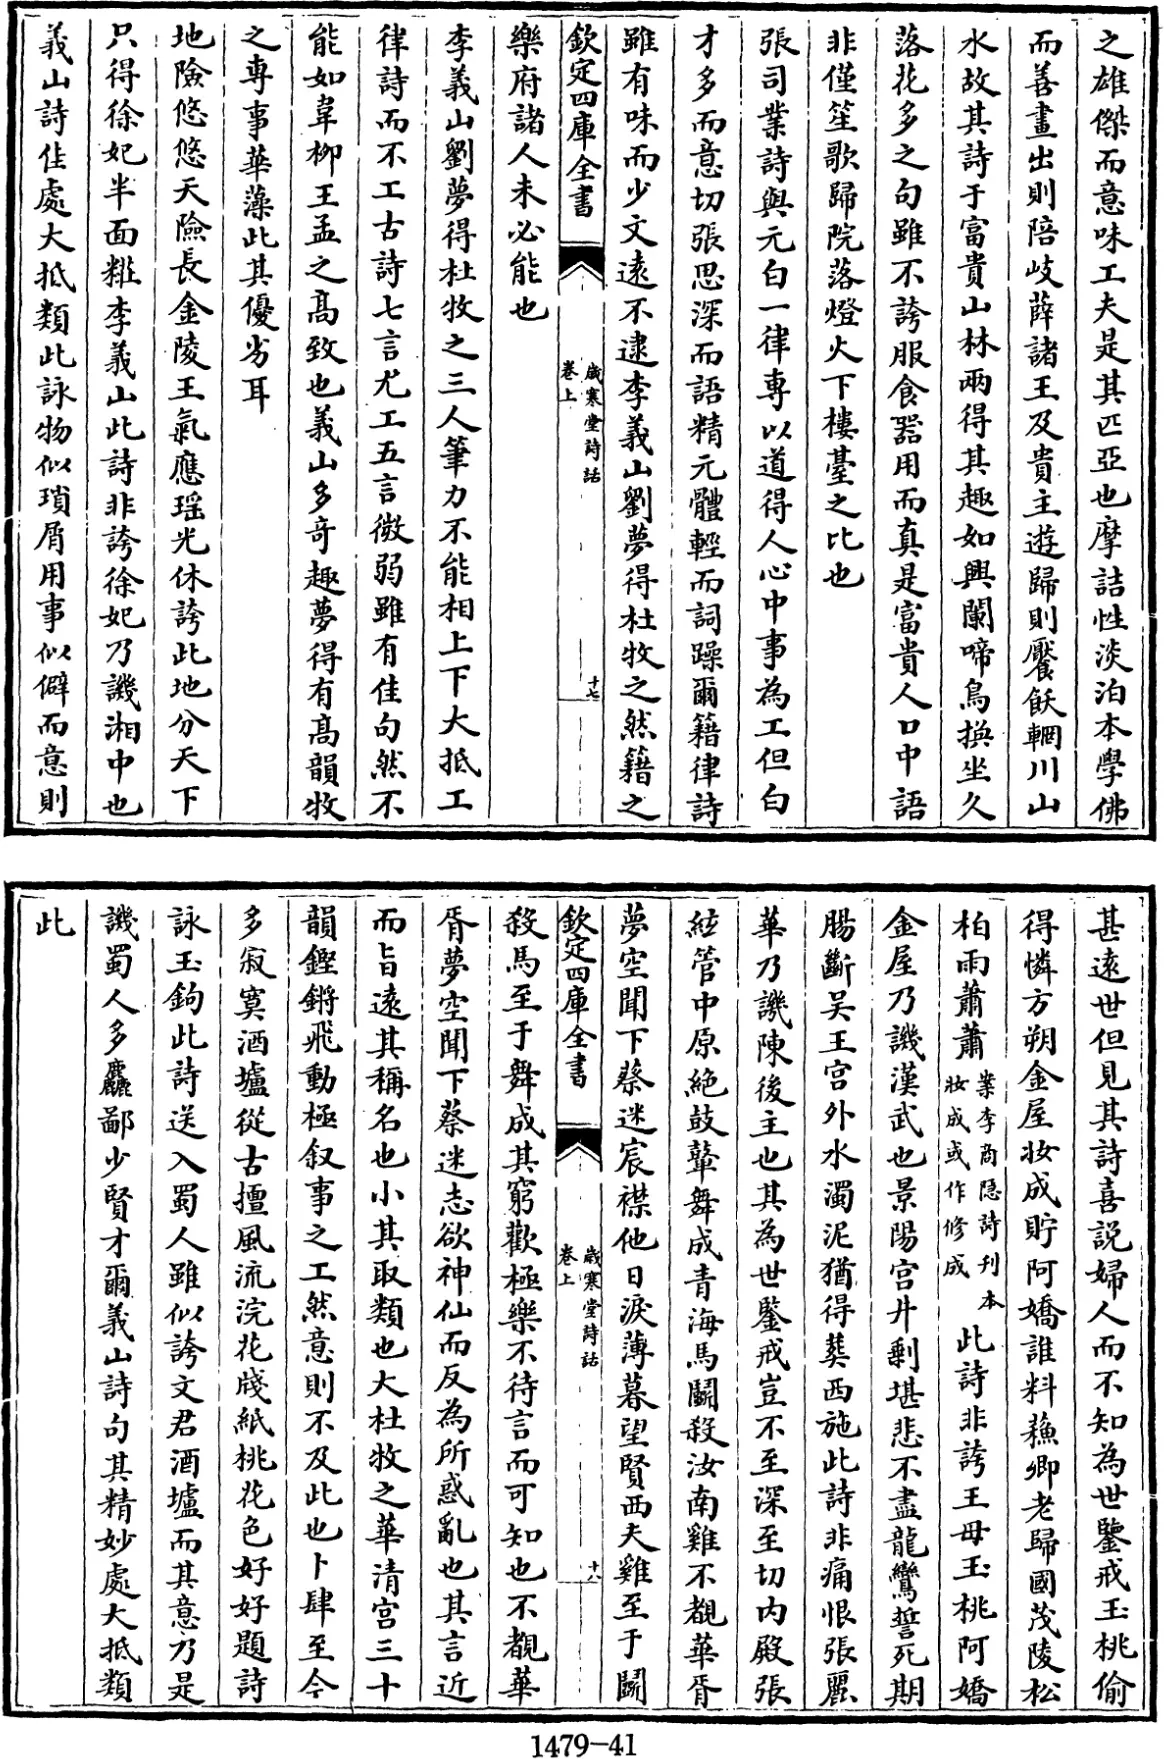 之雄傑而意味工夫是其匹亞也摩詰性淡泊本學佛
而善畫出則陪岐薛諸王及貴主遊歸則饜飫輞川山
水故其詩于富貴山林兩得其趣如興闌啼鳥換坐久
落花多之句雖不誇服食器用而真是富貴人口中語
非僅笙歌歸院落燈火下樓臺之比也
張司業詩與元白一律專以道得人心中事為工但白
才多而意切張思深而語精元體輕而詞躁爾籍律詩
雖有味而少文遠不逮李義山劉夢得杜牧之然籍之
欽定四庫全書
歲寒堂詩話
卷上
十七
樂府諸人未必能也
李義山劉夢得杜牧之三人筆力不能相上下大抵工
律詩而不工古詩七言尤工五言微弱雖有佳句然不
能如韋柳王孟之高致也義山多奇趣夢得有高韻牧
之專事華藻此其優劣耳
地險悠悠天險長金陵王氣應瑤光休誇此地分天下
只得徐妃半面粧李義山此詩非誇徐妃乃譏湘中也
義山詩佳處大抵類此詠物似瑣屑用事似僻而意則
甚遠世但見其詩喜説婦人而不知為世鑒戒玉桃偷
得憐方朔金屋妝成貯阿嬌誰料蘓卿老歸國茂陵松
柏雨蕭蕭
案李商隱詩刊本
妝成或作修成
此詩非誇王母玉桃阿嬌
金屋乃譏漢武也景陽宮井剩堪悲不盡龍鸞誓死期
腸斷吳王宮外水濁泥猶得葬西施此詩非痛恨張麗
華乃譏陳後主也其為世鑒戒豈不至深至切内殿張
絃管中原絶鼓鼙舞成青海馬鬭殺汝南雞不覩華胥
夢空聞下蔡迷宸襟他日淚薄暮望賢西夫雞至于鬭
欽定四庫全書
歲寒堂詩話
卷上
十八
殺馬至于舞成其窮歡極樂不待言而可知也不覩華
胥夢空聞下蔡迷志欲神仙而反為所惑亂也其言近
而旨遠其稱名也小其取類也大杜牧之華清宮三十
韻鏗鏘飛動極叙事之工然意則不及此也卜肆至今
多寂寞酒壚從古擅風流浣花牋紙桃花色好好題詩
詠玉鉤此詩送入蜀人雖似誇文君酒壚而其意乃是
譏蜀人多麤鄙少賢才爾義山詩句其精妙處大抵類
此
1479-41